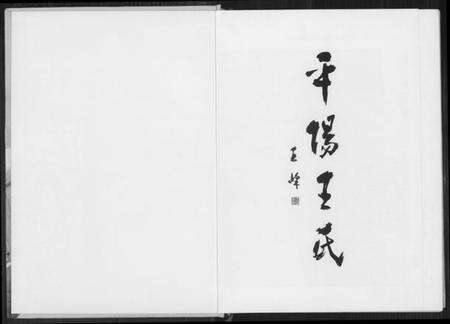 平陽王氏
王峰